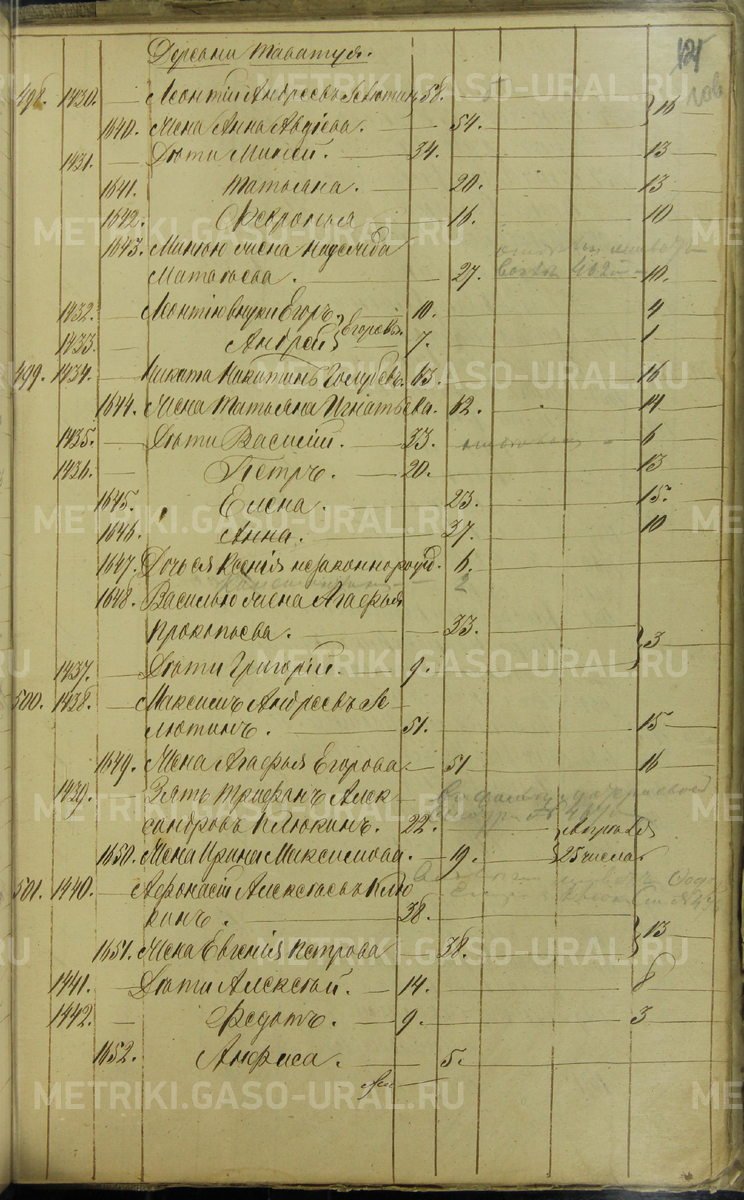 Деревни Таватуя.
121
498. 1430. Леонтий Андреевъ 58. 16
1640. Жена Анна Авдѣева. 54.
1431. Дѣти Михей. 34. 13
1641. Татьяна. 20. 13
1642. Февронья 16. 10
1643. Михею жена Надежда
Матвѣева. 27. 10.
1432. Леонтію внуки Егоръ. 10. 4
1433. Андрей Егоровы. 7. 1
499. 1434. Никита Никитинъ Голубевъ. 63. 16
1644. Жена Татьяна Игнатьева. 62. 14
1435. Дѣти Василій. 33. 6
1436. Петръ. 20. 13
1645. Елена. 23. 15.
1646. Анна. 37. 10
1647. Дочь ея Ксенія незаконнорожд. 6.
2
1648. Василью жена Агафья
Прокопьева. 33. 3
1437. Дѣти Григорій. 9.
500. 1438. Максимъ Андреевъ
51. 15
1649. Жена Агафья Егорова 51 16
1439. Зять Трифонъ Алек-
сандровъ Клюкинъ. 22.
1650. Жена Ирина Максимова. 19. 25 числа
501. 1440. Афонасій Алексѣевъ Клю
кинъ. 38. 13
1651. Жена Евгенія Петрова 38.
1441. Дѣти Алексѣй. 14. 8
1442. Федотъ. 9. 3
1652. Анфиса. 5.
METRIKI.GASO-URAL.RU